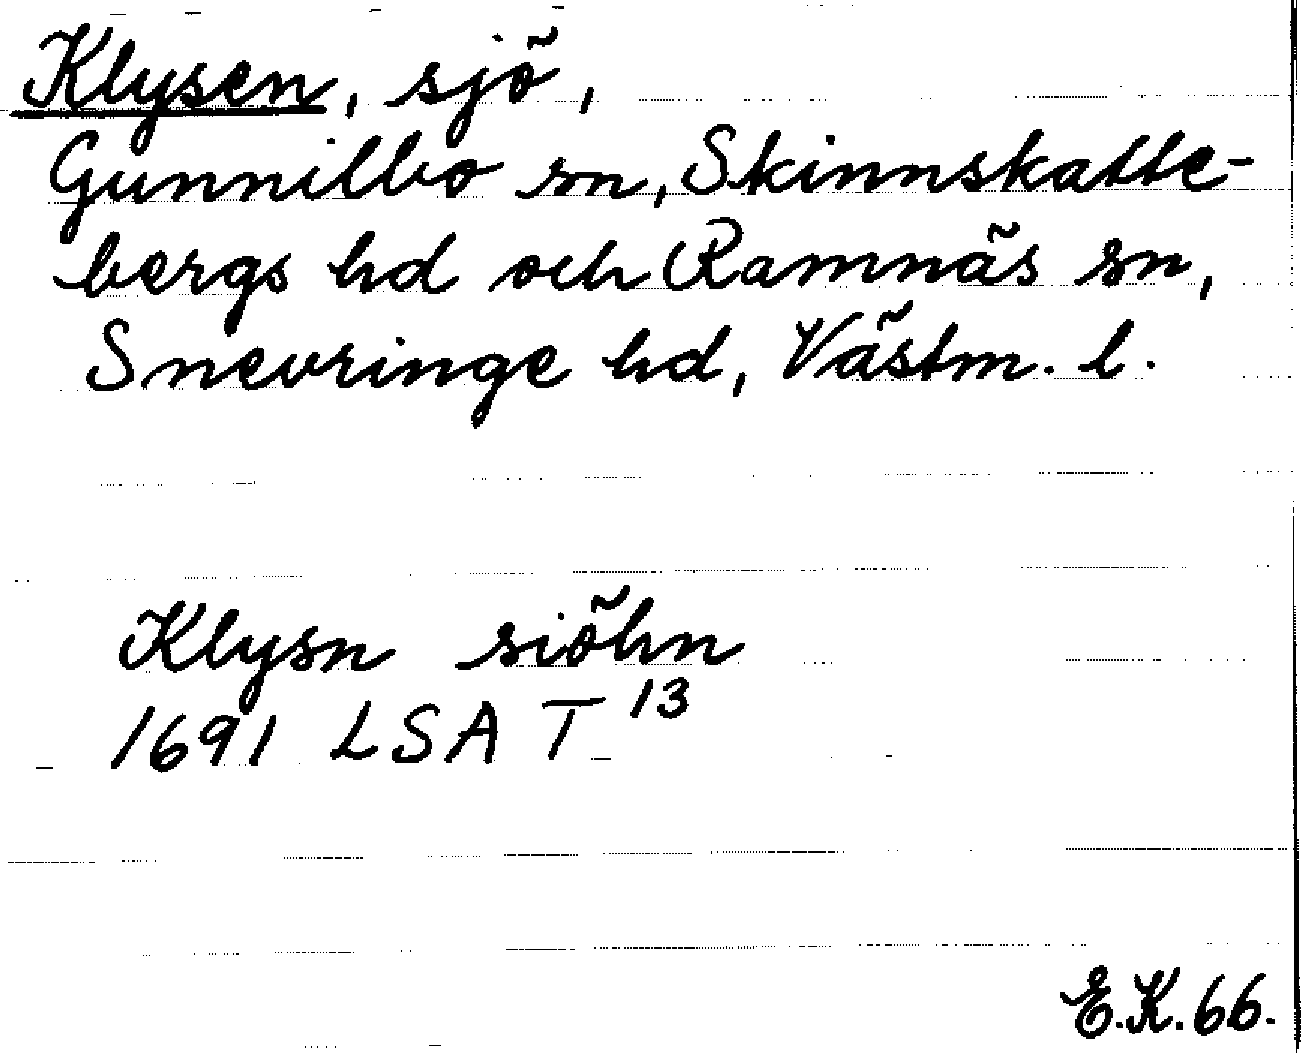 Klysen, sjö,
Gunnilbo sn, Skinnskatte-
bergs hd och Ramnäs sn,
Snevringe hd, Västm. l.
Klysn siöhn
1691 LSA T 13
E.K. 66.